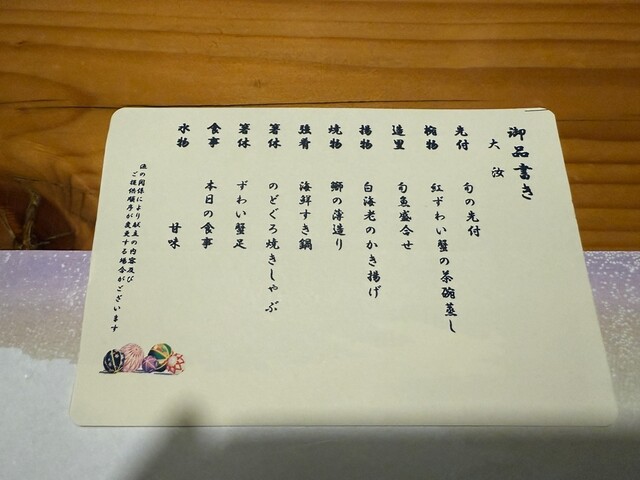 御品書き
大汝
先付 旬の先付
椀物 紅ずわい蟹の茶碗蒸し
造里 旬魚盛合せ
揚物 白海老のかき揚げ
焼物 鰤の薄造り
強肴 海鮮すき鍋
箸休 のどぐろ焼きしゃぶ
箸休 ずわい蟹足
食事 本日の食事
水物 甘味
漁の関係により献立の内容及び
ご提供順序が変更する場合がございます